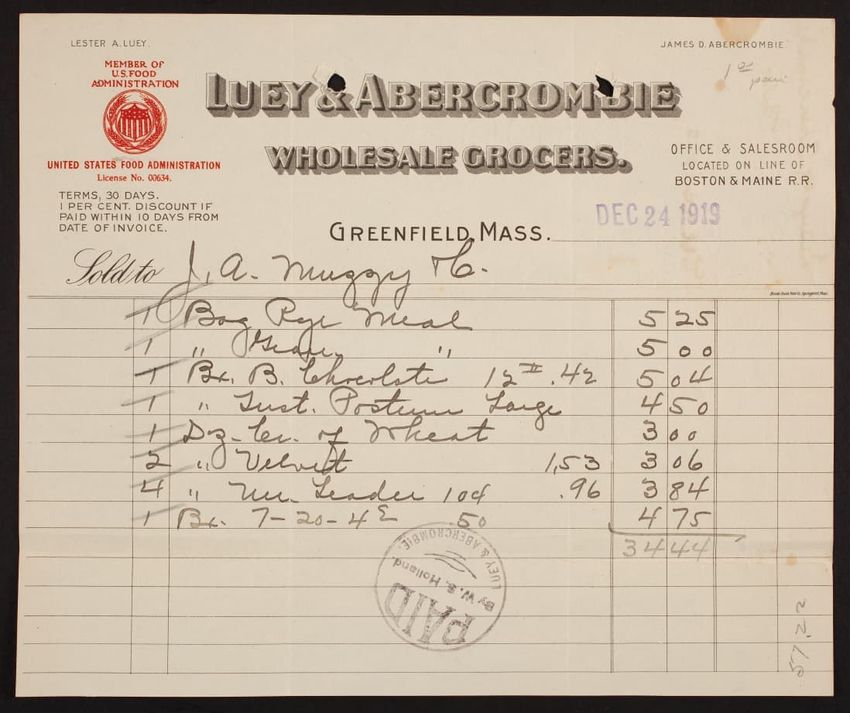 LESTER A. LUEY.
JAMES D. ABERCROMBIE
MEMBER OF
U.S. FOOD
ADMINISTRATION
UNITED STATES FOOD ADMINISTRATION
License No. 00634.
TERMS, 30 DAYS.
1 PER CENT. DISCOUNT IF
PAID WITHIN 10 DAYS FROM
DATE OF INVOICE.
LUEY & ABERCROMBIE
WHOLESALE GROCERS.
OFFICE & SALESROOM
LOCATED ON LINE OF
BOSTON & MAINE R.R.
DEC 24 1919
GREENFIELD, MASS.
Sold to J. A. Muggy & C.
1 Bag Rye Meal 5 25
1 " " 5 00
1 Bx. B. Chocolate 12 .42 5 04
1 " Inst. Postum Large 4 50
1 Doz. Cr. of Wheat 3 00
2 " Velvet 1,53 3 06
4 " Leader 10¢ .96 3 84
1 Bx. 7-20-4 50 4 75
34 44
PAID
By W. S. Holland.
LUEY & ABERCROMBIE.
57.22